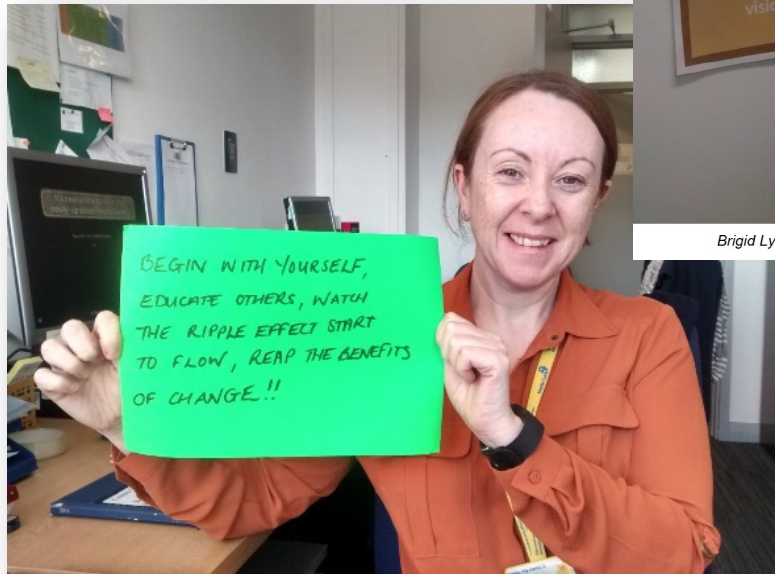 visi
Brigid Ly
BEGIN WITH YOURSELF,
EDUCATE OTHERS, WATCH
THE RIPPLE EFFECT START
TO FLOW, REAP THE BENEFITS
OF CHANGE!!